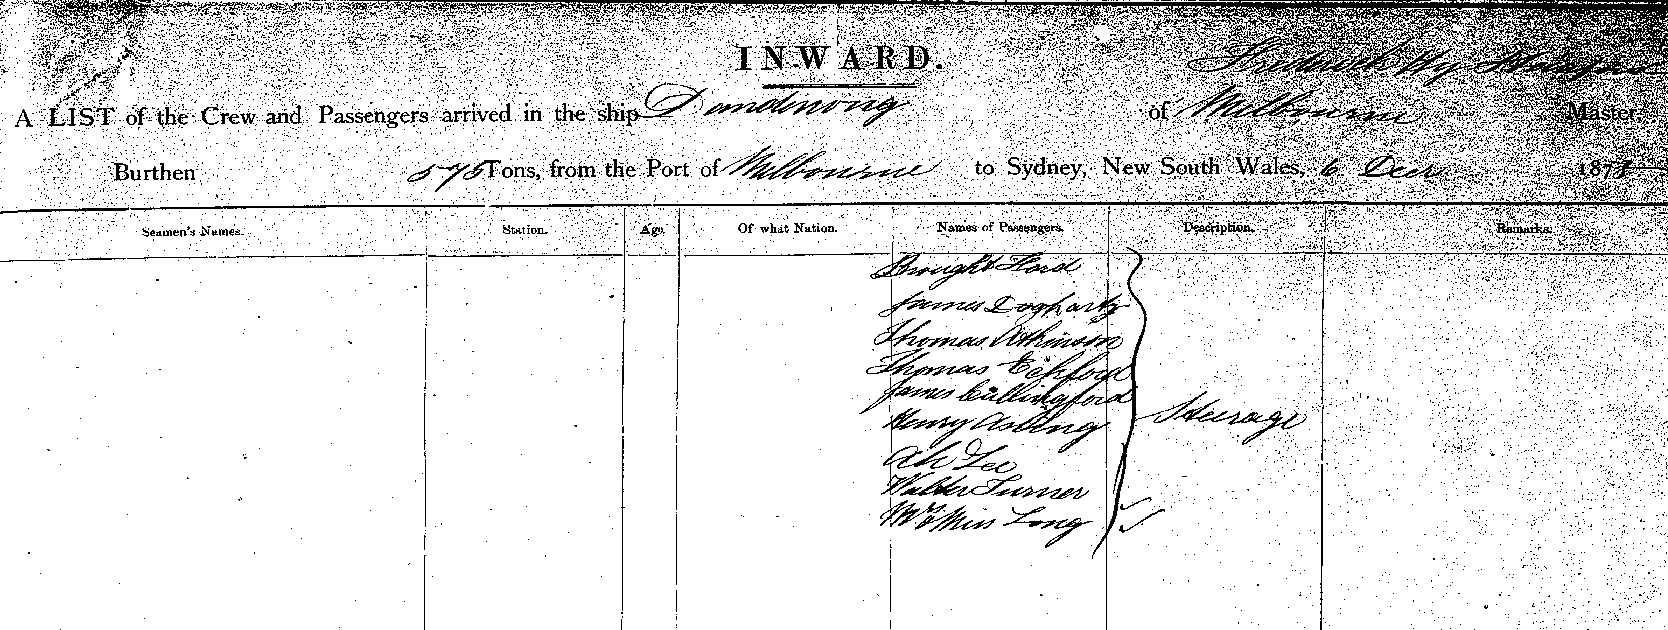 INWARD.
A LIST of the Crew and Passengers arrived in the ship Dandenong of Melbourne Master.
Burthen 575 Tons, from the Port of Melbourne to Sydney, New South Wales, 6 Decr 187
Seamen's Names. Station. Age. Of what Nation. Names of Passengers. Description. Remarks.
James Dogharty
Thomas Atkinson
Thomas Eckford
James Cullingford
Henry Asling
Steerage
Ah Lee
Walter Turner
Mrs & Miss Long